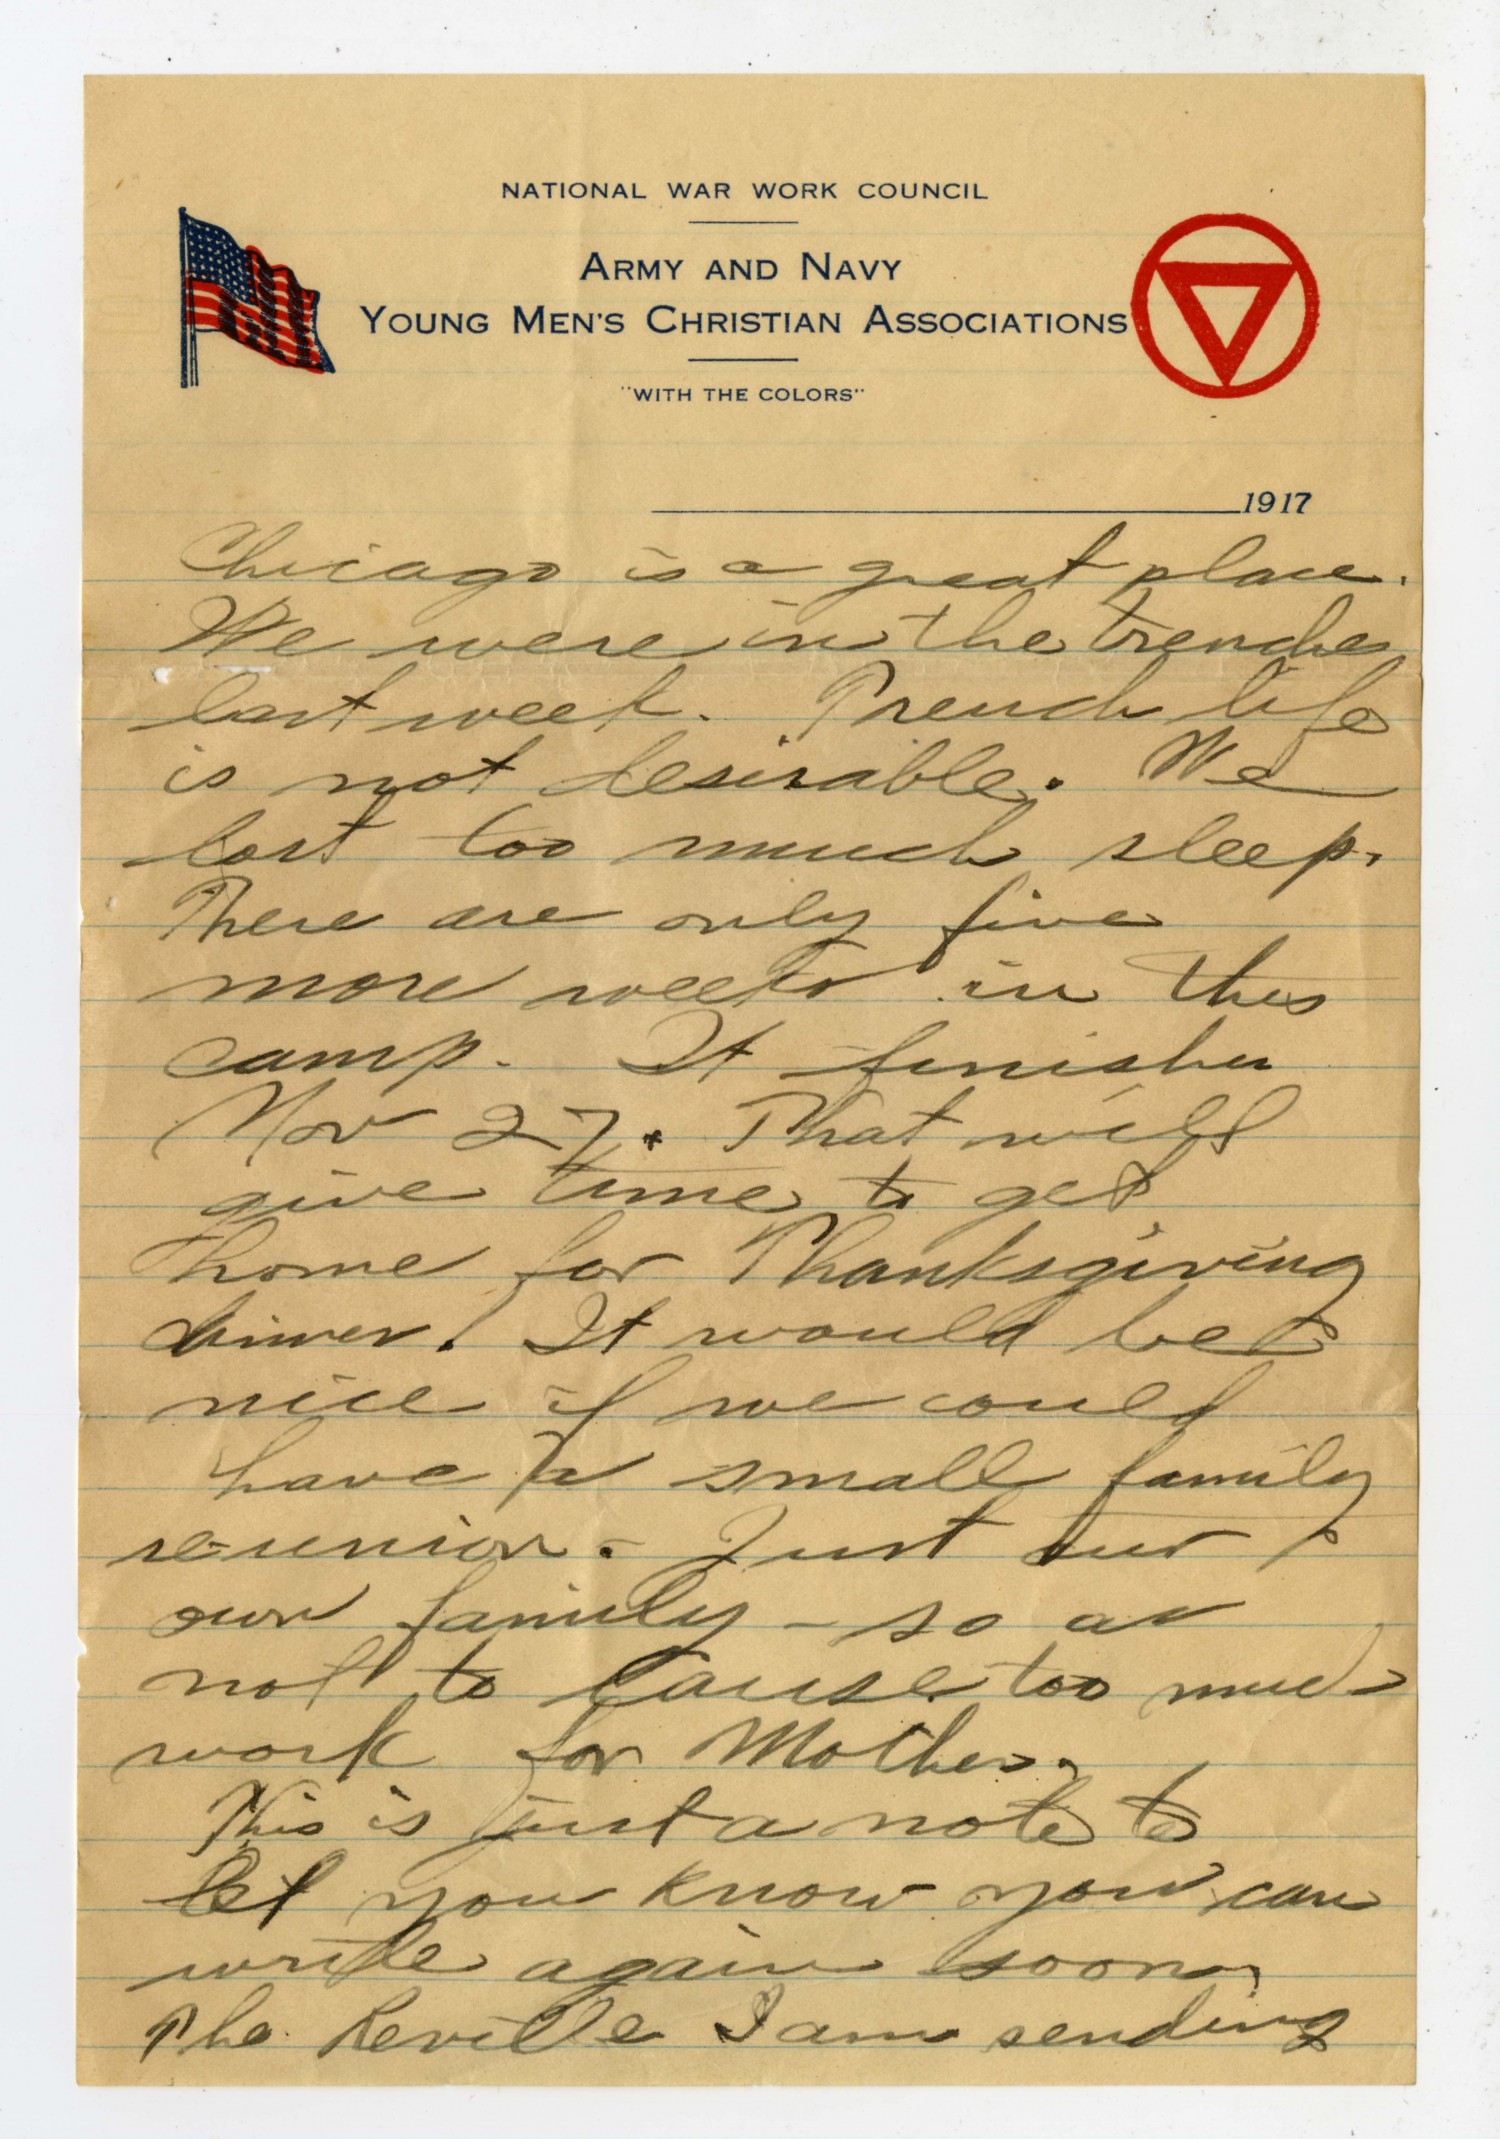 NATIONAL WAR WORK COUNCIL
ARMY AND NAVY
YOUNG MEN'S CHRISTIAN ASSOCIATIONS
"WITH THE COLORS"
1917
Chicago is a great place.
We were in the trenches
last week. Trench life
is not desirable. We
lost too much sleep.
There are only five
more weeks in this
camp. It finishes
Nov 27. That will
give time to get
home for Thanksgiving
dinner. It would be
nice if we could
have a small family
re-union. Just our
own family - so as
not to cause too much
work for Mother.
This is just a note to
let you know you can
write again soon,
The Reville I am sending